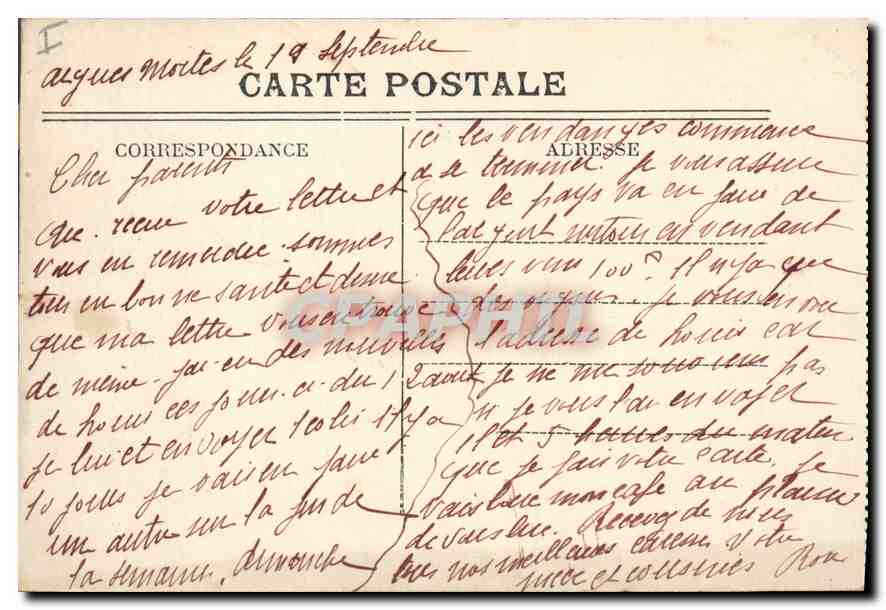 I
aigues mortes le 19 Septembre
CARTE POSTALE
CORRESPONDANCE
ADRESSE
Cher parents
recue votre lettre et
vous en remercie. sommes
tous en bonne santé et desire
que ma lettre vous en trouve
de même. jai eu des nouvelles
de louis ces jours. ci. du 1
je lui et envoyer 1 colis il y a
10 jours je vais en faire
un autre sur la fin de
la semaine, dimanche
ici les vendanges commence
a se terminer. je vous assure
que le pays va en faire de
largent surtout en vendant
leurs vins 100 f. Il n'y a que
des . je vous envoie
ladresse de louis car
2 aout je ne me souviens pas
si je vous lai envoyer
Il et 5 heures du matin
que je fais votre carte, je
vais boire mon café au plaisir
de vous lire. Recevez de nous
tous nos meilleures caresses Votre
niece et cousines Rose
CPAPHIL